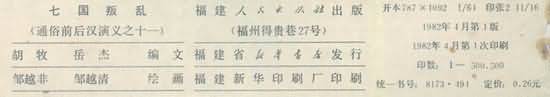 七国叛乱
(通俗前后汉演义之十一)
胡牧 岳杰 编文
邹越非 邹越清 绘画
福建人民出版社出版
(福州得贵巷27号)
福建省新华书店发行
福建新华印刷厂印刷
开本787×1092 1/64 印张2 11/16
1982年4月第1版
1982年4月第1次印刷
印数:1—500,500
统一书号:8173·491 定价:0.26元